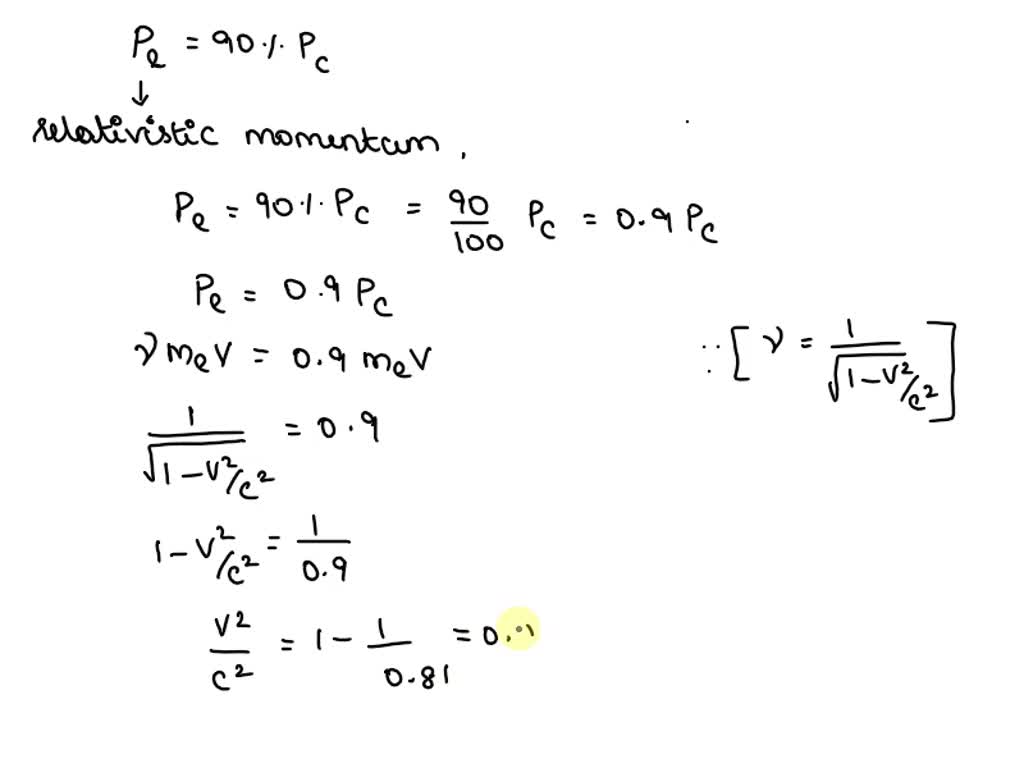 Pₑ = 90 % P_c
↓
relativistic momentum.
Pₑ = 90 % P_c = 90/100 P_c = 0.9 P_c
Pₑ = 0.9 P_c
γ mₑ V = 0.9 mₑ V
∵ [ γ = 1/√(1 - V²/c²) ]
1/√(1 - V²/c²) = 0.9
1 - V²/c² = 1/0.9
V²/c² = 1 - 1/0.81 = 0.